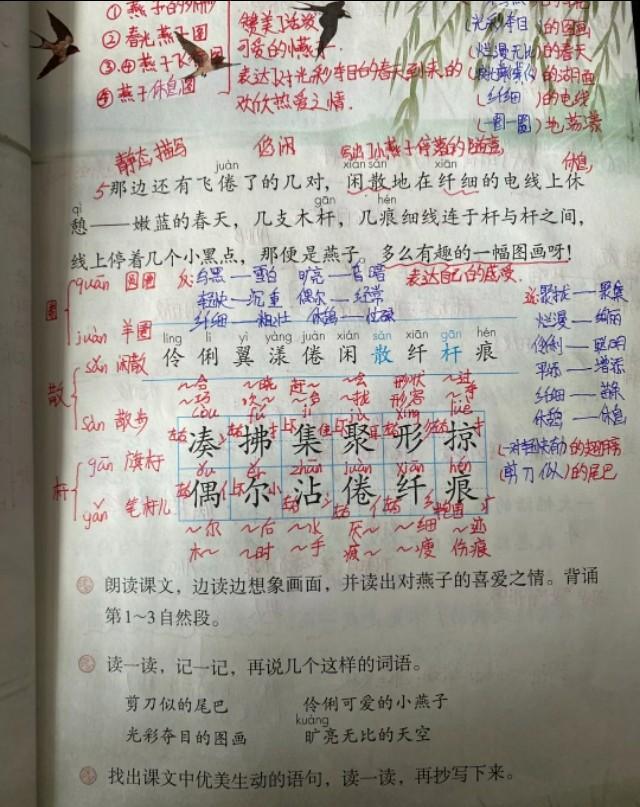 ① 燕子的外形图
② 春光燕子图
③.④ 燕子飞行图
④ 燕子休息图
赞美了活泼
可爱的小燕子.
表达对光彩夺目的春天到来的
欣欣热爱之情.
(光彩夺目)的图画
(烂漫无比)的春天
的湖面
(纤细)的电线
(一圈一圈)地荡漾
静态描写 悠闲 写出了小燕子停落的 休息
juàn xián sǎn xiān
5那边还有飞倦了的几对，闲散地在纤细的电线上休
qì gān hén
憩——嫩蓝的春天，几支木杆，几痕细线连于杆与杆之间，
线上停着几个小黑点，那便是燕子。多么有趣的一幅图画呀！
表达自己的感受.
圈 quān 圆圈
juàn 羊圈
反: 乌黑——雪白 旷亮——昏暗
轻快——沉重 偶尔——经常
纤细——粗壮 休憩——
近: 聚拢——聚集
烂漫——绚丽
伶俐——聪明
平添——增添
纤细——
休憩——休息
líng lì yì yàng juàn xián sǎn xiān gān hén
伶 俐 翼 漾 倦 闲 散 纤 杆 痕
散 sǎn 闲散
sàn 散步
杆 gān 旗杆
gǎn 笔杆儿
～合 ～晓 赶～ ～会 形状 ～过
～巧 ～拢 形容
còu fú jí jù xíng lüè
凑 拂 集 聚 形 掠
ǒu ěr zhān juàn xiān hén
偶 尔 沾 倦 纤 痕
～尔 ～后 ～水 厌～ ～细 ～迹
木～ ～时 ～手 疲～ ～瘦 伤痕
(一对轻快有力)的翅膀
(剪刀似)的尾巴
朗读课文，边读边想象画面，并读出对燕子的喜爱之情。背诵
第1~3自然段。
读一读，记一记，再说几个这样的词语。
剪刀似的尾巴 伶俐可爱的小燕子
kuàng
光彩夺目的图画 旷亮无比的天空
找出课文中优美生动的语句，读一读，再抄写下来。